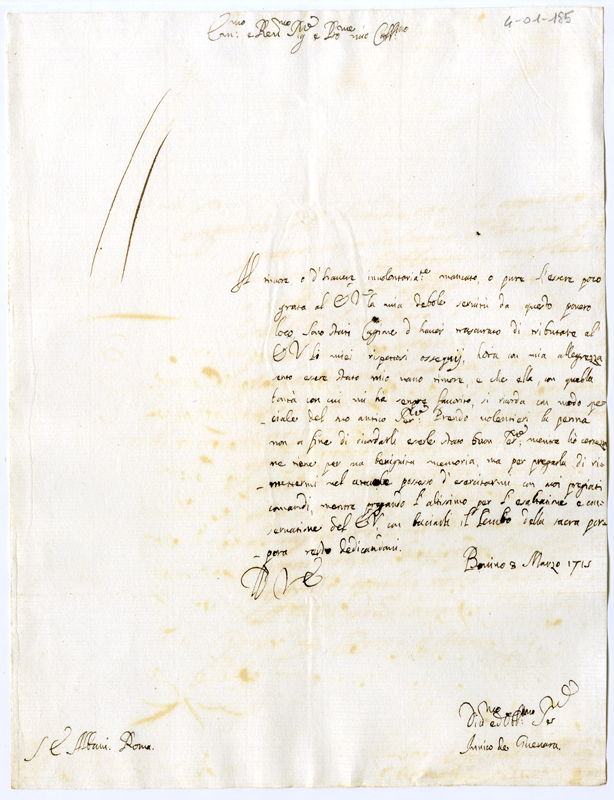 4-01-185
Em.mo e Rev.mo Sig.re e P.rone mio Coll.mo
Il timore o d'havere involontaria.te mancato, o pure d'essere poco
grata al E V la mia debole servitù da questo povero
loco, sono stati cagione d'haver trascurato di tributare al
E V li miei rispettosi ossequij, hora con mia allegrezza
sento essere stato mio vano timore, e che ella, con quella
bontà con cui mi ha sempre favorito, si ricorda con modo spe-
ciale del suo antico Ser.re Prendo volentieri la penna
non a fine di ricordarli esserle stato buon Ser.re mentre
me tiene per sua benignità memoria, ma per pregarla di ri-
mettermi nel attuale possesso di esercitarmi con suoi pregiati
comandi, mentre pregando l'altissimo per l'esaltatione e con-
servatione del E V, con baciarli il lembo della sacra por-
pora resto dedicandomi.
D V E
Bovino 8 Marzo 1715
S E Albani. Roma.
Div.mo ed Obl.mo Ser
Innico de Guevara